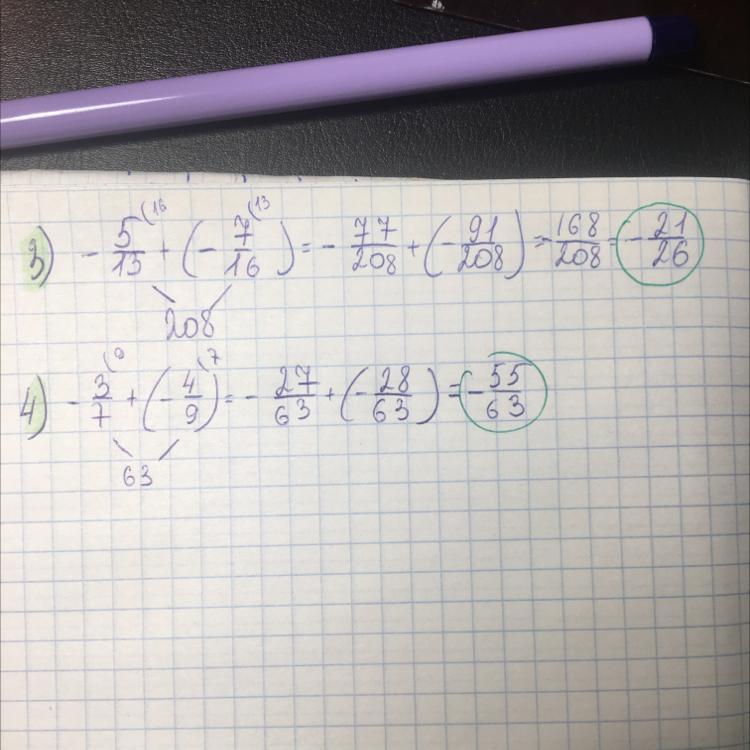 3) - 5/13 (16 + (- 7/16 (13) = - 77/208 + (- 91/208) = - 168/208 = - 21/26
208
4) - 3/7 (9 + (- 4/9 (7) = - 27/63 + (- 28/63) = - 55/63
63